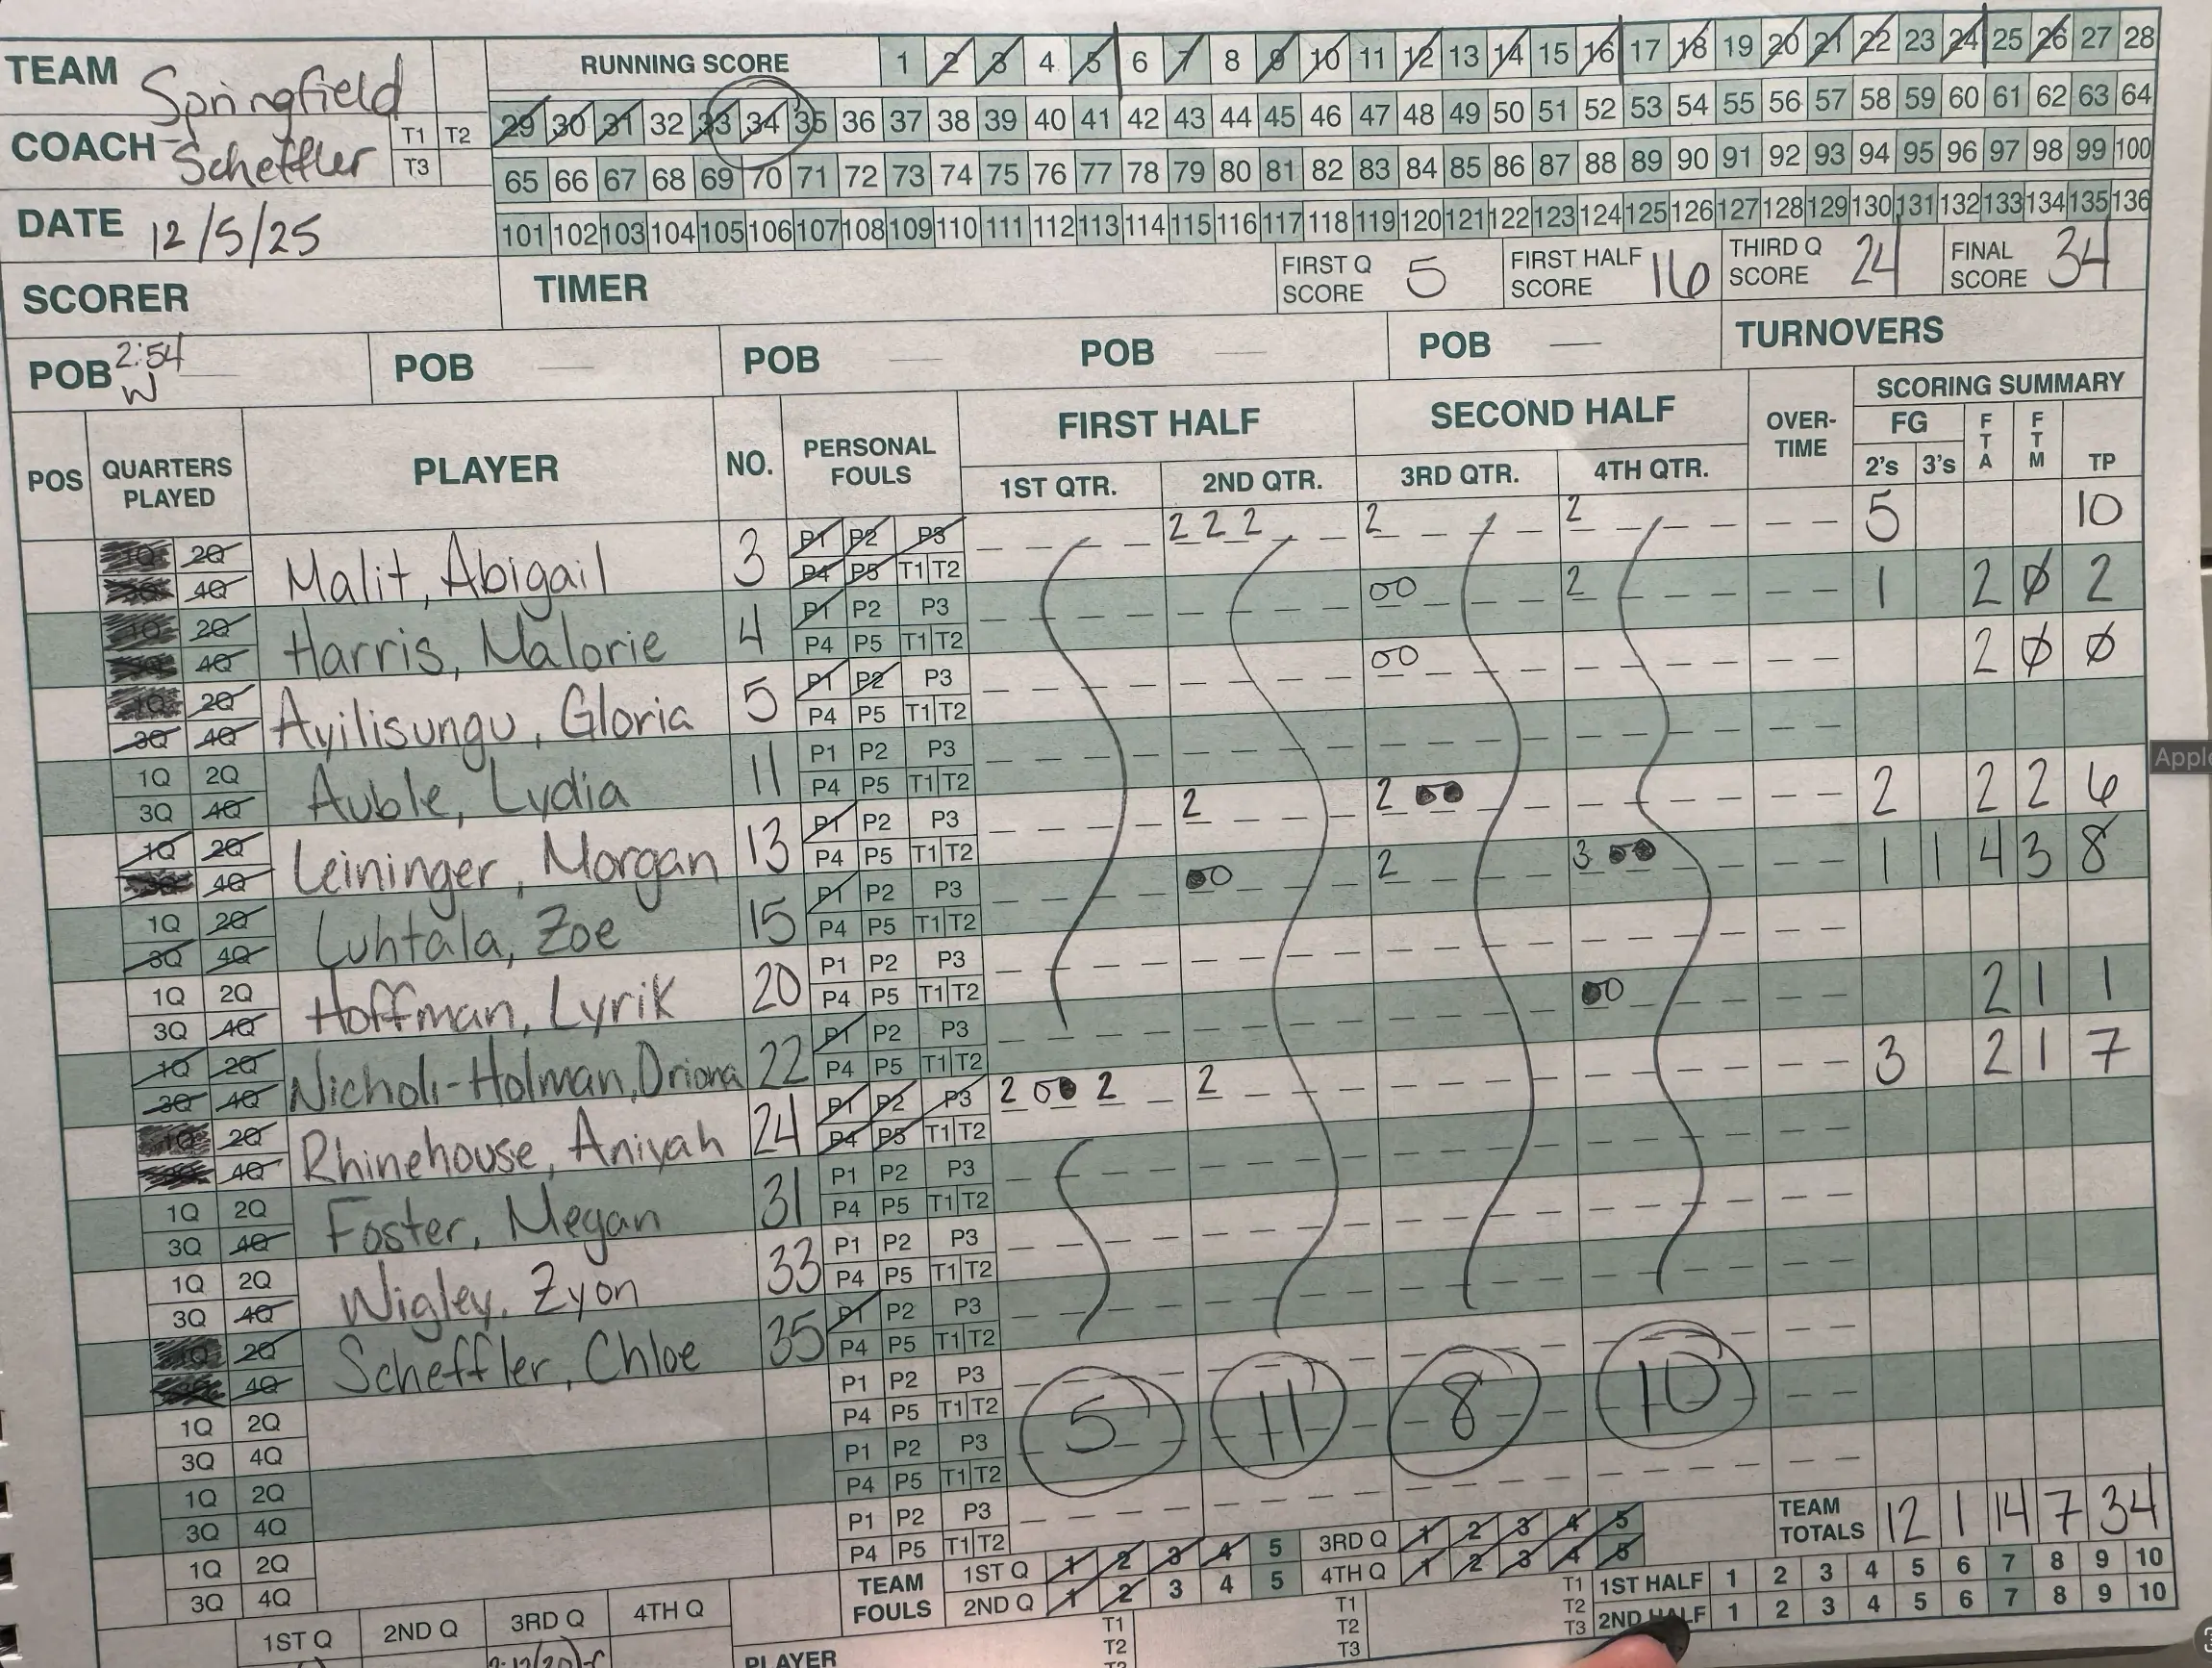 TEAM Springfield
RUNNING SCORE 1 2 3 4 5 6 7 8 9 10 11 12 13 14 15 16 17 18 19 20 21 22 23 24 25 26 27 28
29 30 31 32 33 34 35 36 37 38 39 40 41 42 43 44 45 46 47 48 49 50 51 52 53 54 55 56 57 58 59 60 61 62 63 64
COACH Scheffler T1 T2 T3
65 66 67 68 69 70 71 72 73 74 75 76 77 78 79 80 81 82 83 84 85 86 87 88 89 90 91 92 93 94 95 96 97 98 99 100
DATE 12/5/25
101 102 103 104 105 106 107 108 109 110 111 112 113 114 115 116 117 118 119 120 121 122 123 124 125 126 127 128 129 130 131 132 133 134 135 136
SCORER TIMER FIRST Q SCORE 5 FIRST HALF SCORE 16 THIRD Q SCORE 24 FINAL SCORE 34
POB 2:54 W POB POB POB POB TURNOVERS
POS QUARTERS PLAYED PLAYER NO. PERSONAL FOULS FIRST HALF SECOND HALF OVER-TIME SCORING SUMMARY
1ST QTR. 2ND QTR. 3RD QTR. 4TH QTR. FG 2's 3's FTA FTM TP
1Q 2Q 3Q 4Q Malit, Abigail 3 P1 P2 P3 P4 P5 T1 T2 2 2 2 2 2 5 10
1Q 2Q 3Q 4Q Harris, Malorie 4 P1 P2 P3 P4 P5 T1 T2 00 2 1 2 Ø 2
1Q 2Q 3Q 4Q Ayilisungu, Gloria 5 P1 P2 P3 P4 P5 T1 T2 00 2 Ø Ø
1Q 2Q 3Q 4Q Auble, Lydia 11 P1 P2 P3 P4 P5 T1 T2
1Q 2Q 3Q 4Q Leininger, Morgan 13 P1 P2 P3 P4 P5 T1 T2 2 2 ●● 2 2 2 6
1Q 2Q 3Q 4Q Luhtala, Zoe 15 P1 P2 P3 P4 P5 T1 T2 ●0 2 3 ●● 1 1 4 3 8
1Q 2Q 3Q 4Q Hoffman, Lyrik 20 P1 P2 P3 P4 P5 T1 T2
1Q 2Q 3Q 4Q Nicholi-Holman, Driona 22 P1 P2 P3 P4 P5 T1 T2 ●0 2 1 1
1Q 2Q 3Q 4Q Rhinehouse, Aniyah 24 P1 P2 P3 P4 P5 T1 T2 2 0● 2 2 3 2 1 7
1Q 2Q 3Q 4Q Foster, Megan 31 P1 P2 P3 P4 P5 T1 T2
1Q 2Q 3Q 4Q Wigley, Zyon 33 P1 P2 P3 P4 P5 T1 T2
1Q 2Q 3Q 4Q Scheffler, Chloe 35 P1 P2 P3 P4 P5 T1 T2
1Q 2Q 3Q 4Q P1 P2 P3 P4 P5 T1 T2 5 11 8 10
1Q 2Q 3Q 4Q P1 P2 P3 P4 P5 T1 T2
1Q 2Q 3Q 4Q P1 P2 P3 P4 P5 T1 T2
TEAM TOTALS 12 1 14 7 34
TEAM FOULS 1ST Q 1 2 3 4 5 3RD Q 1 2 3 4 5
2ND Q 1 2 3 4 5 4TH Q 1 2 3 4 5
T1 T2 T3 1ST HALF 1 2 3 4 5 6 7 8 9 10
2ND HALF 1 2 3 4 5 6 7 8 9 10
1ST Q 2ND Q 3RD Q 4TH Q
PLAYER T1 T2 T1 T2 T3
Apple